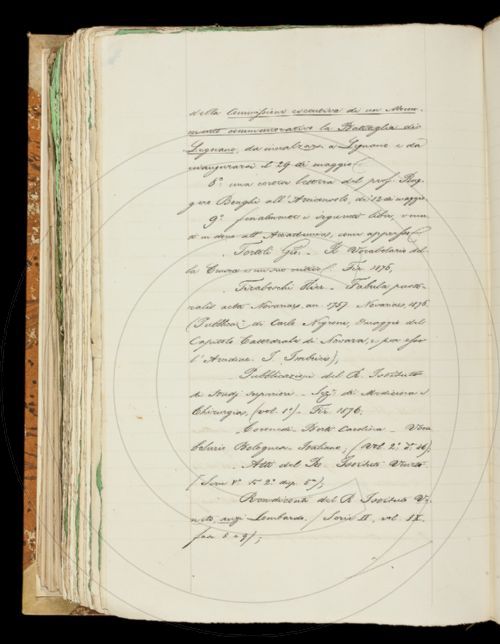 della Commissione esecutiva di un Monu-
mento commemorativo la Battaglia di
Legnano, da innalzarsi a Legnano e da
inaugurarsi il 29 di maggio;
8.° una cortese lettera del prof. Rug-
gero Bonghi all'Arciconsolo, di 12 di maggio
9.° finalmente i seguenti libri, venu-
ti in dono all'Accademia, come appresso:
Tortoli Gio. - Il Vocabolario del-
la Crusca e un suo critico. Fir. 1876,
Tiraboschi Hier. - Fabula pasto-
ralis acta Novariae, an. 1757. Novariae, 1876.
(Pubblicaz. di Carlo Negroni, omaggio del
Capitolo Cattedrale di Novara, e per esso
l'Arcidiac.
Pubblicazioni del R. Istituto
di Studj superiori. - Sez. di Medicina e
Chirurgia, (vol. 1°) - Fir. 1876;
Coronedi Berti Carolina - Voca
bolario Bolognese Italiano; (Vol. 2.°
Atti del R. Istituto Veneto
(Serie V.ª T.° 2.° disp. 5ª);
Rendiconti del R. Istituto Ve-
neto, anzi Lombardo. (Serie II, vol. IX.
fasc. 8 e 9);